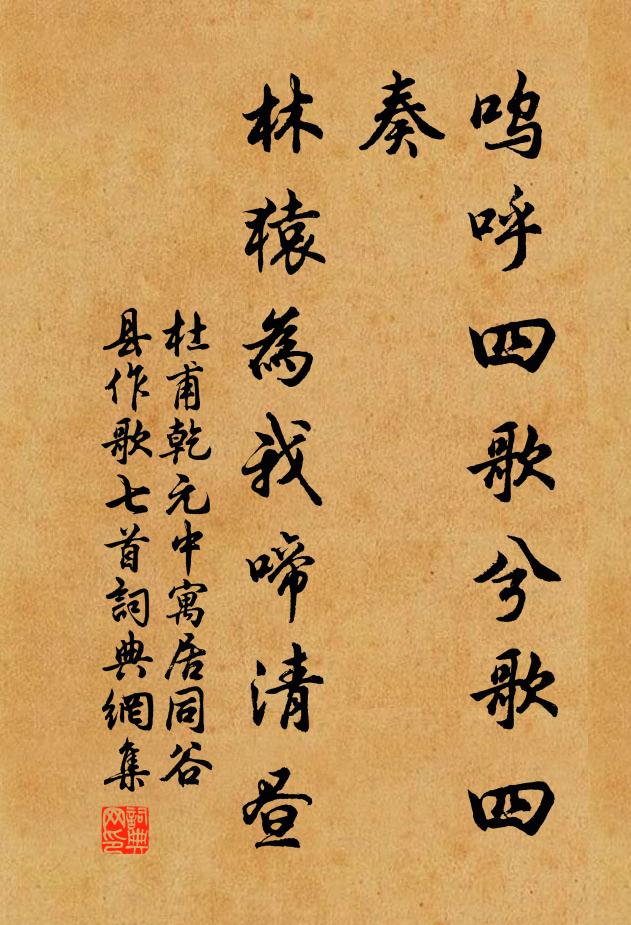 呜呼四歌兮歌四
奏
林猿為我啼清昼
杜甫乾元中寓居同谷
县作歌七首詞典網集
詞典网印